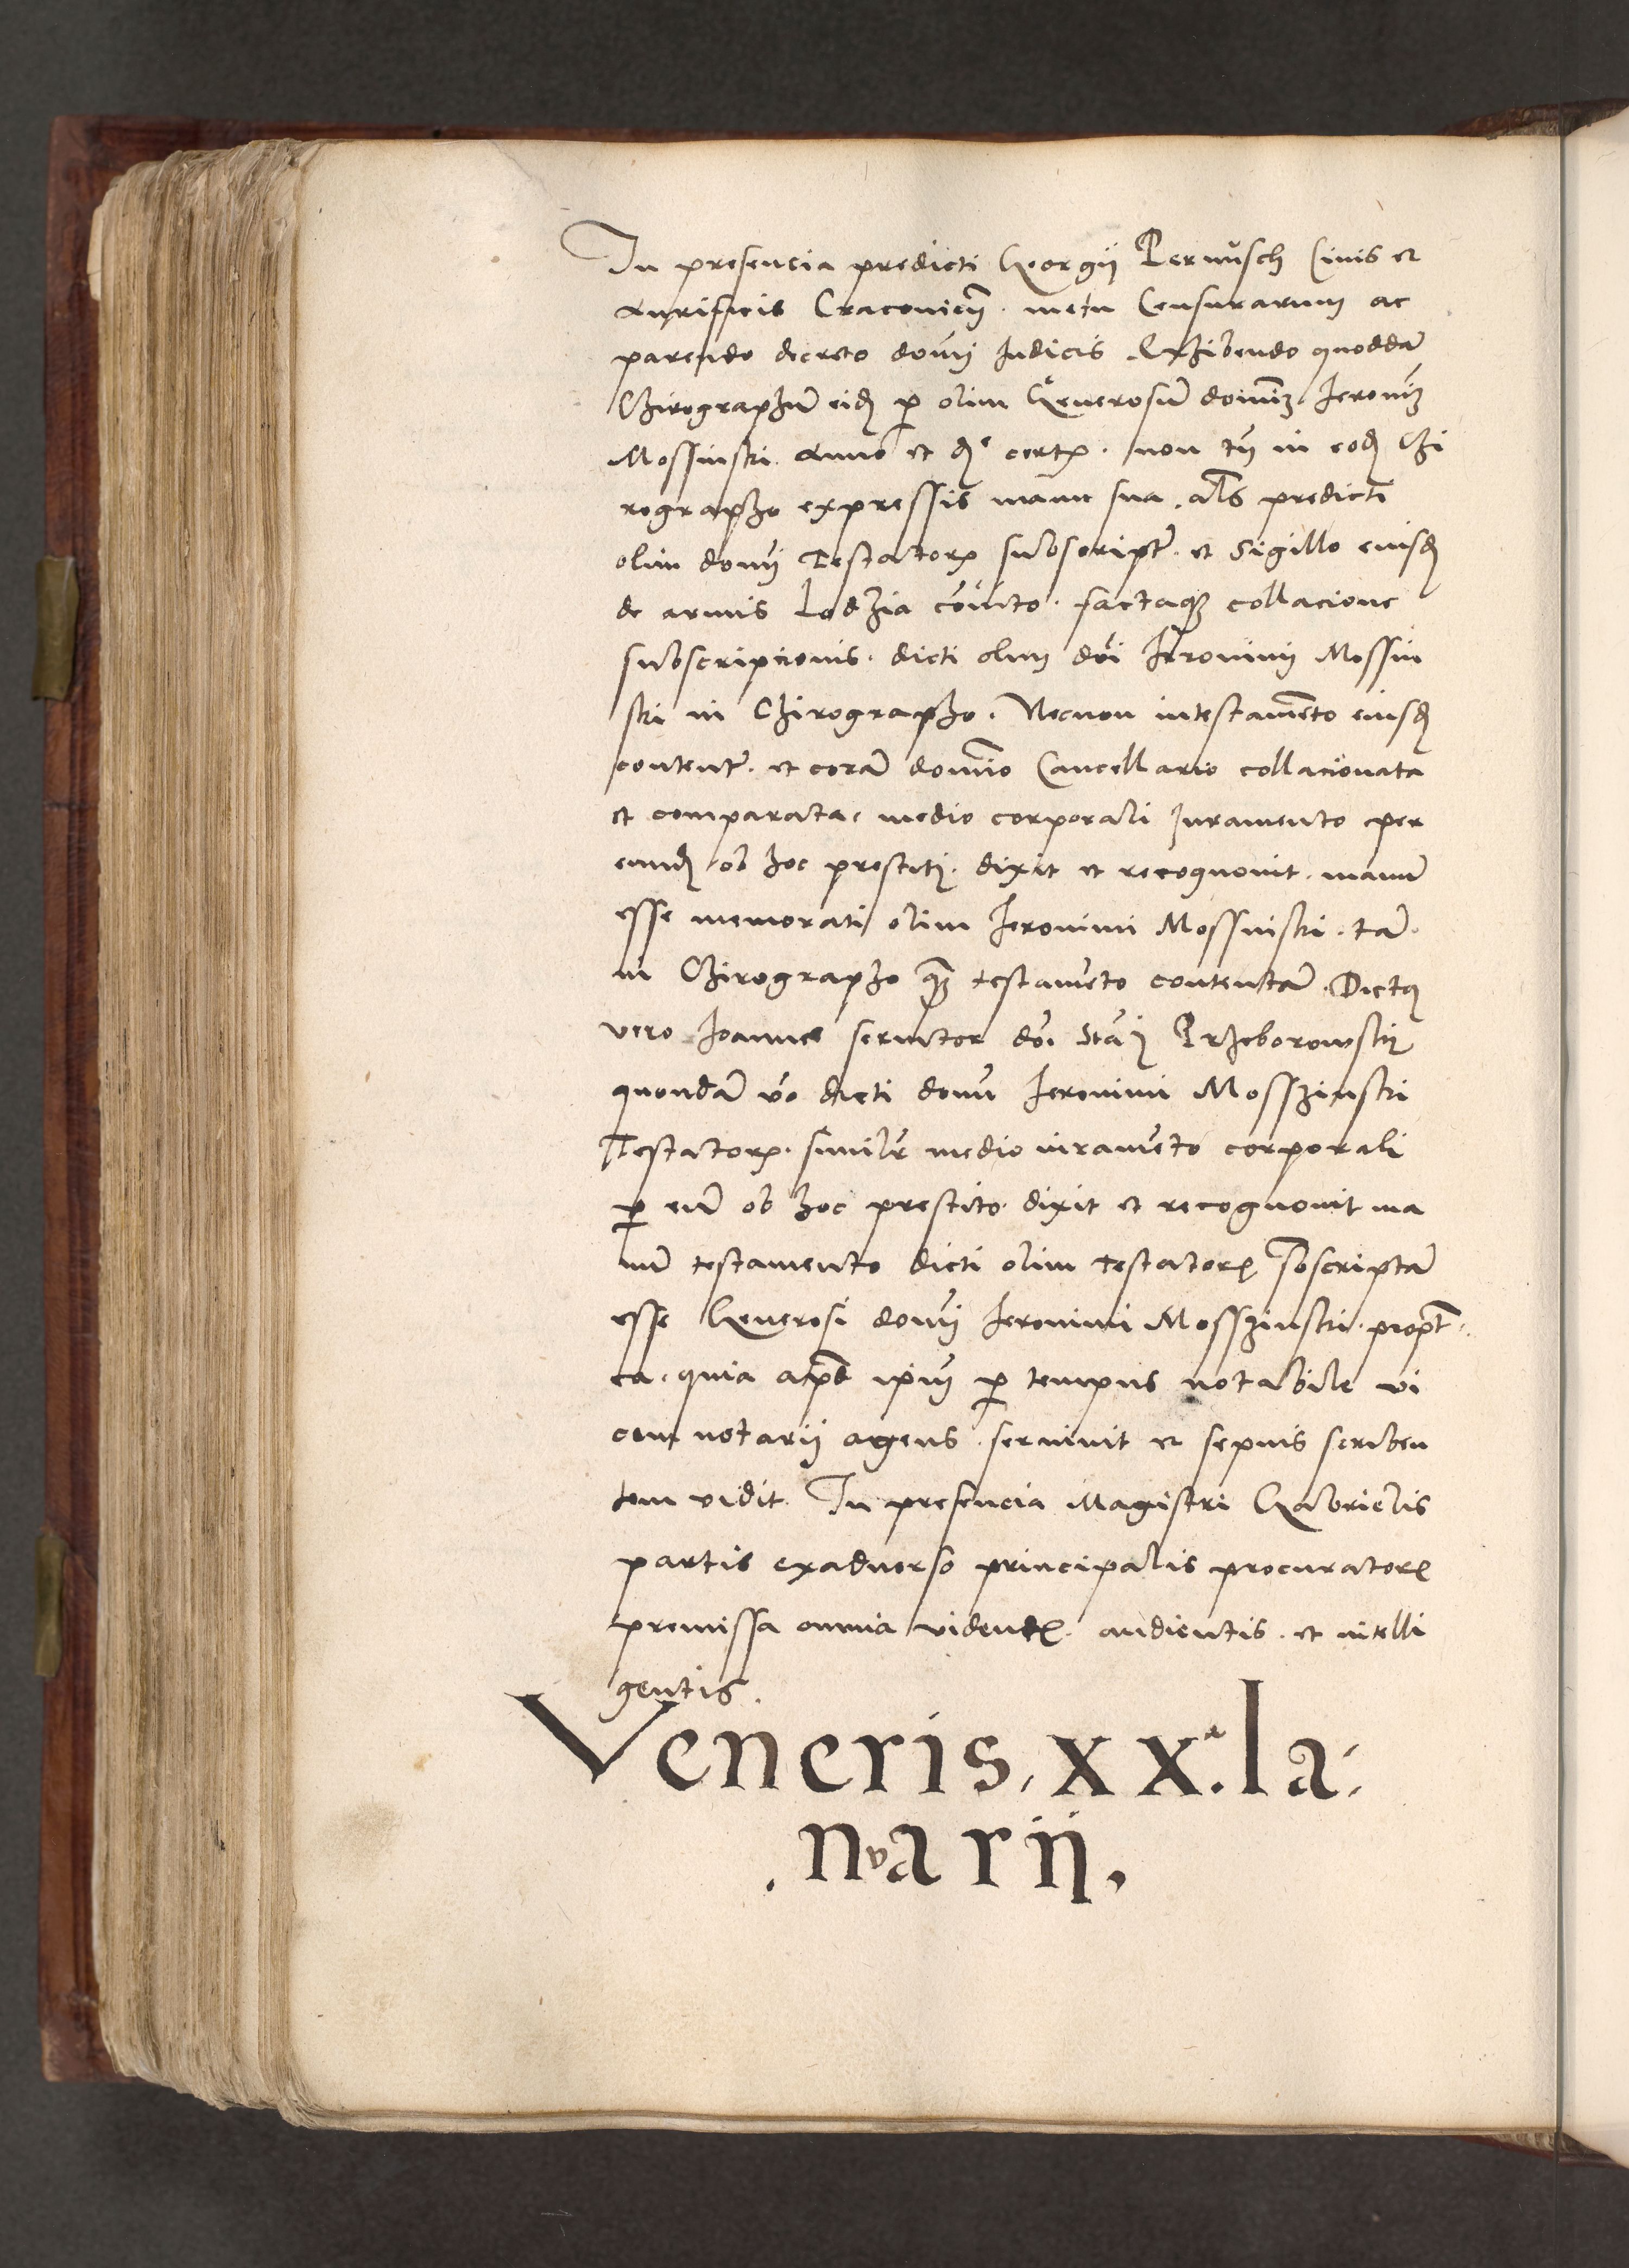 In presencia predicti Georgij Pernusch Civis et
Aurificis Cracovien̄. metu Censurarum ac
parendo decreto domī Iudicis Exhibendo quoddā
Chirographū eidē p olim Generosū dominū Ieronimū
Mossinski Anno et die certis. non tn̄ in eodē Chi
rographo expressis manu sua. als predicti
olim domī Testatoris subscriptū. et Sigillo eiusdē
de armis Lodzia cōmito. factaqz collacione
subscripcionis. dicti olim dōi Ieronimi Mossin
ski in Chirographo. Necnon intestamēto eiusdē
contentū. et corā domīo Cancellario collacionata
et comparata. medio corporali Iuramento per
eundē ob hoc prestiti. dixit et recognovit. manū
esse memorati olim Ieronimi Mossinski. tā.
in Chirographo qz testamēto contentā. Dictus
vero Ioannes servitor dōi Stāi Przeborowski
quondā vō dicti domī Ieronimi Mosszinski
Testatoris. similr medio iuramēto corporali
p eū ob hoc prestito. dixit et recognovit ma
nū testamento dicti olim testatoris sbscriptā
esse Generosi domī Ieronimi Mosszinski. propt.
ea. quia apd ipm̄ p tempus notabile vi
cem notarij agens. servivit et sepius scriben
tem vidit. In presencia Magistri Gabrielis
partis exadverso principalis procuratoris
premissa omnia videntis. audientis. et intelli
gentis.
Veneris, xxᵃ. Ia:
.nvarij.